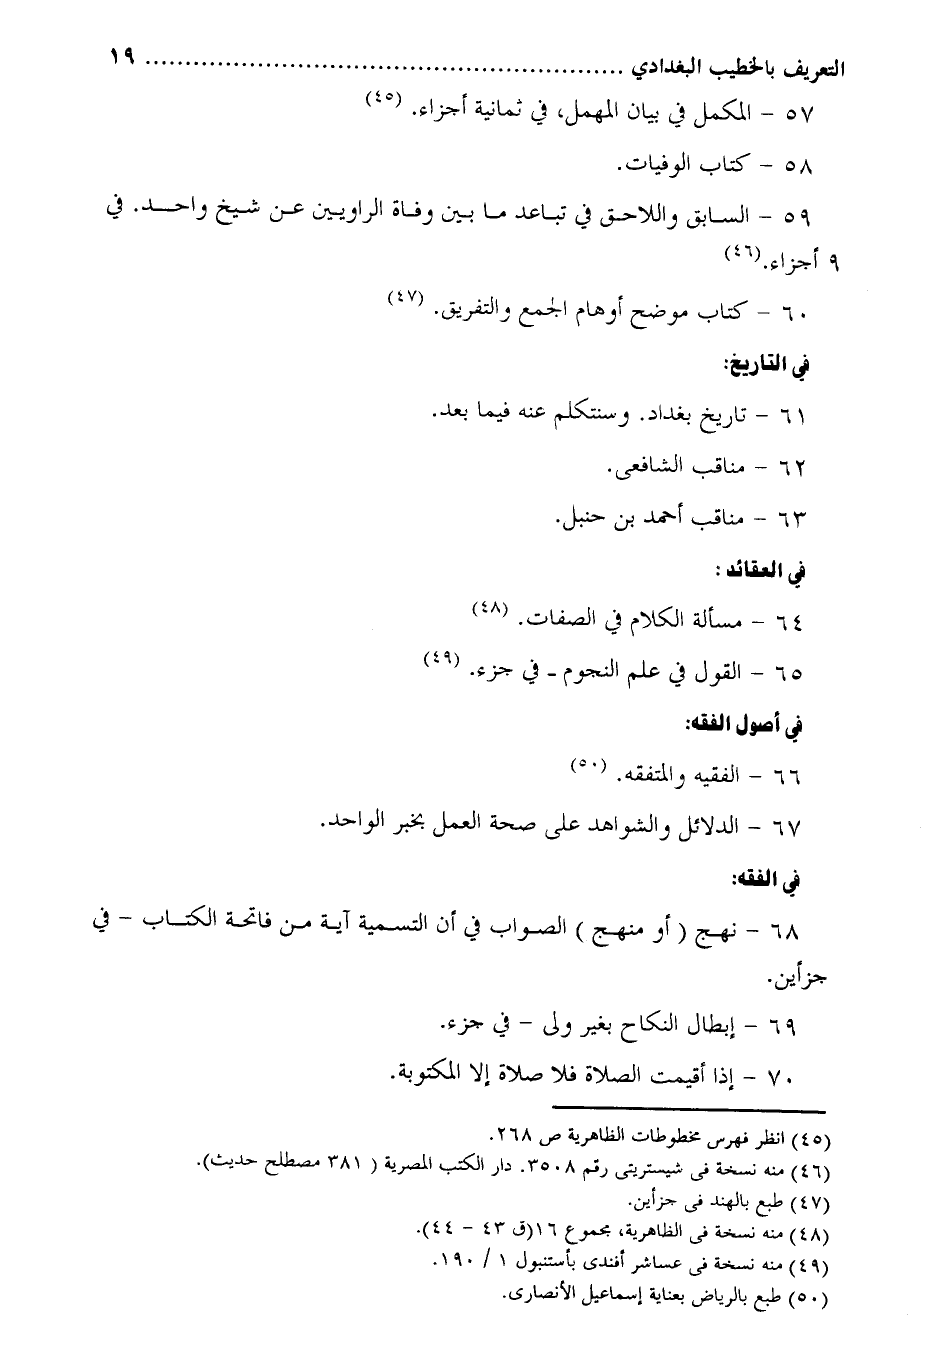 التعريف بالخطيب البغدادي ............................................................ ١٩
٥٧ - المكمل في بيان المهمل، في ثمانية أجزاء. (٤٥)
٥٨ - كتاب الوفيات.
٥٩ - السابق واللاحق في تباعد ما بين وفاة الراويين عن شيخ واحد. في
٩ أجزاء.(٤٦)
٦٠ - كتاب موضح أوهام الجمع والتفريق. (٤٧)
في التاريخ:
٦١ - تاريخ بغداد. وسنتكلم عنه فيما بعد.
٦٢ - مناقب الشافعى.
٦٣ - مناقب أحمد بن حنبل.
في العقائد :
٦٤ - مسألة الكلام في الصفات. (٤٨)
٦٥ - القول في علم النجوم ـ في جزء. (٤٩)
في أصول الفقه:
٦٦ - الفقيه والمتفقه. (٥٠)
٦٧ - الدلائل والشواهد على صحة العمل بخبر الواحد.
في الفقه:
٦٨ - نهج ( أو منهج ) الصواب في أن التسمية آية من فاتحة الكتاب - في
جزأين.
٦٩ - إبطال النكاح بغير ولى - في جزء.
٧٠ - إذا أقيمت الصلاة فلا صلاة إلا المكتوبة.
(٤٥) انظر فهرس مخطوطات الظاهرية ص ٢٦٨.
(٤٦) منه نسخة فى شيستريتى رقم ٣٥٠٨. دار الكتب المصرية ( ٣٨١ مصطلح حديث).
(٤٧) طبع بالهند فى جزأين.
(٤٨) منه نسخة فى الظاهرية، مجموع ١٦(ق ٤٣ - ٤٤).
(٤٩) منه نسخة فى عساشر أفندى بأستنبول ١ / ١٩٠.
(٥٠) طبع بالرياض بعناية إسماعيل الأنصارى.